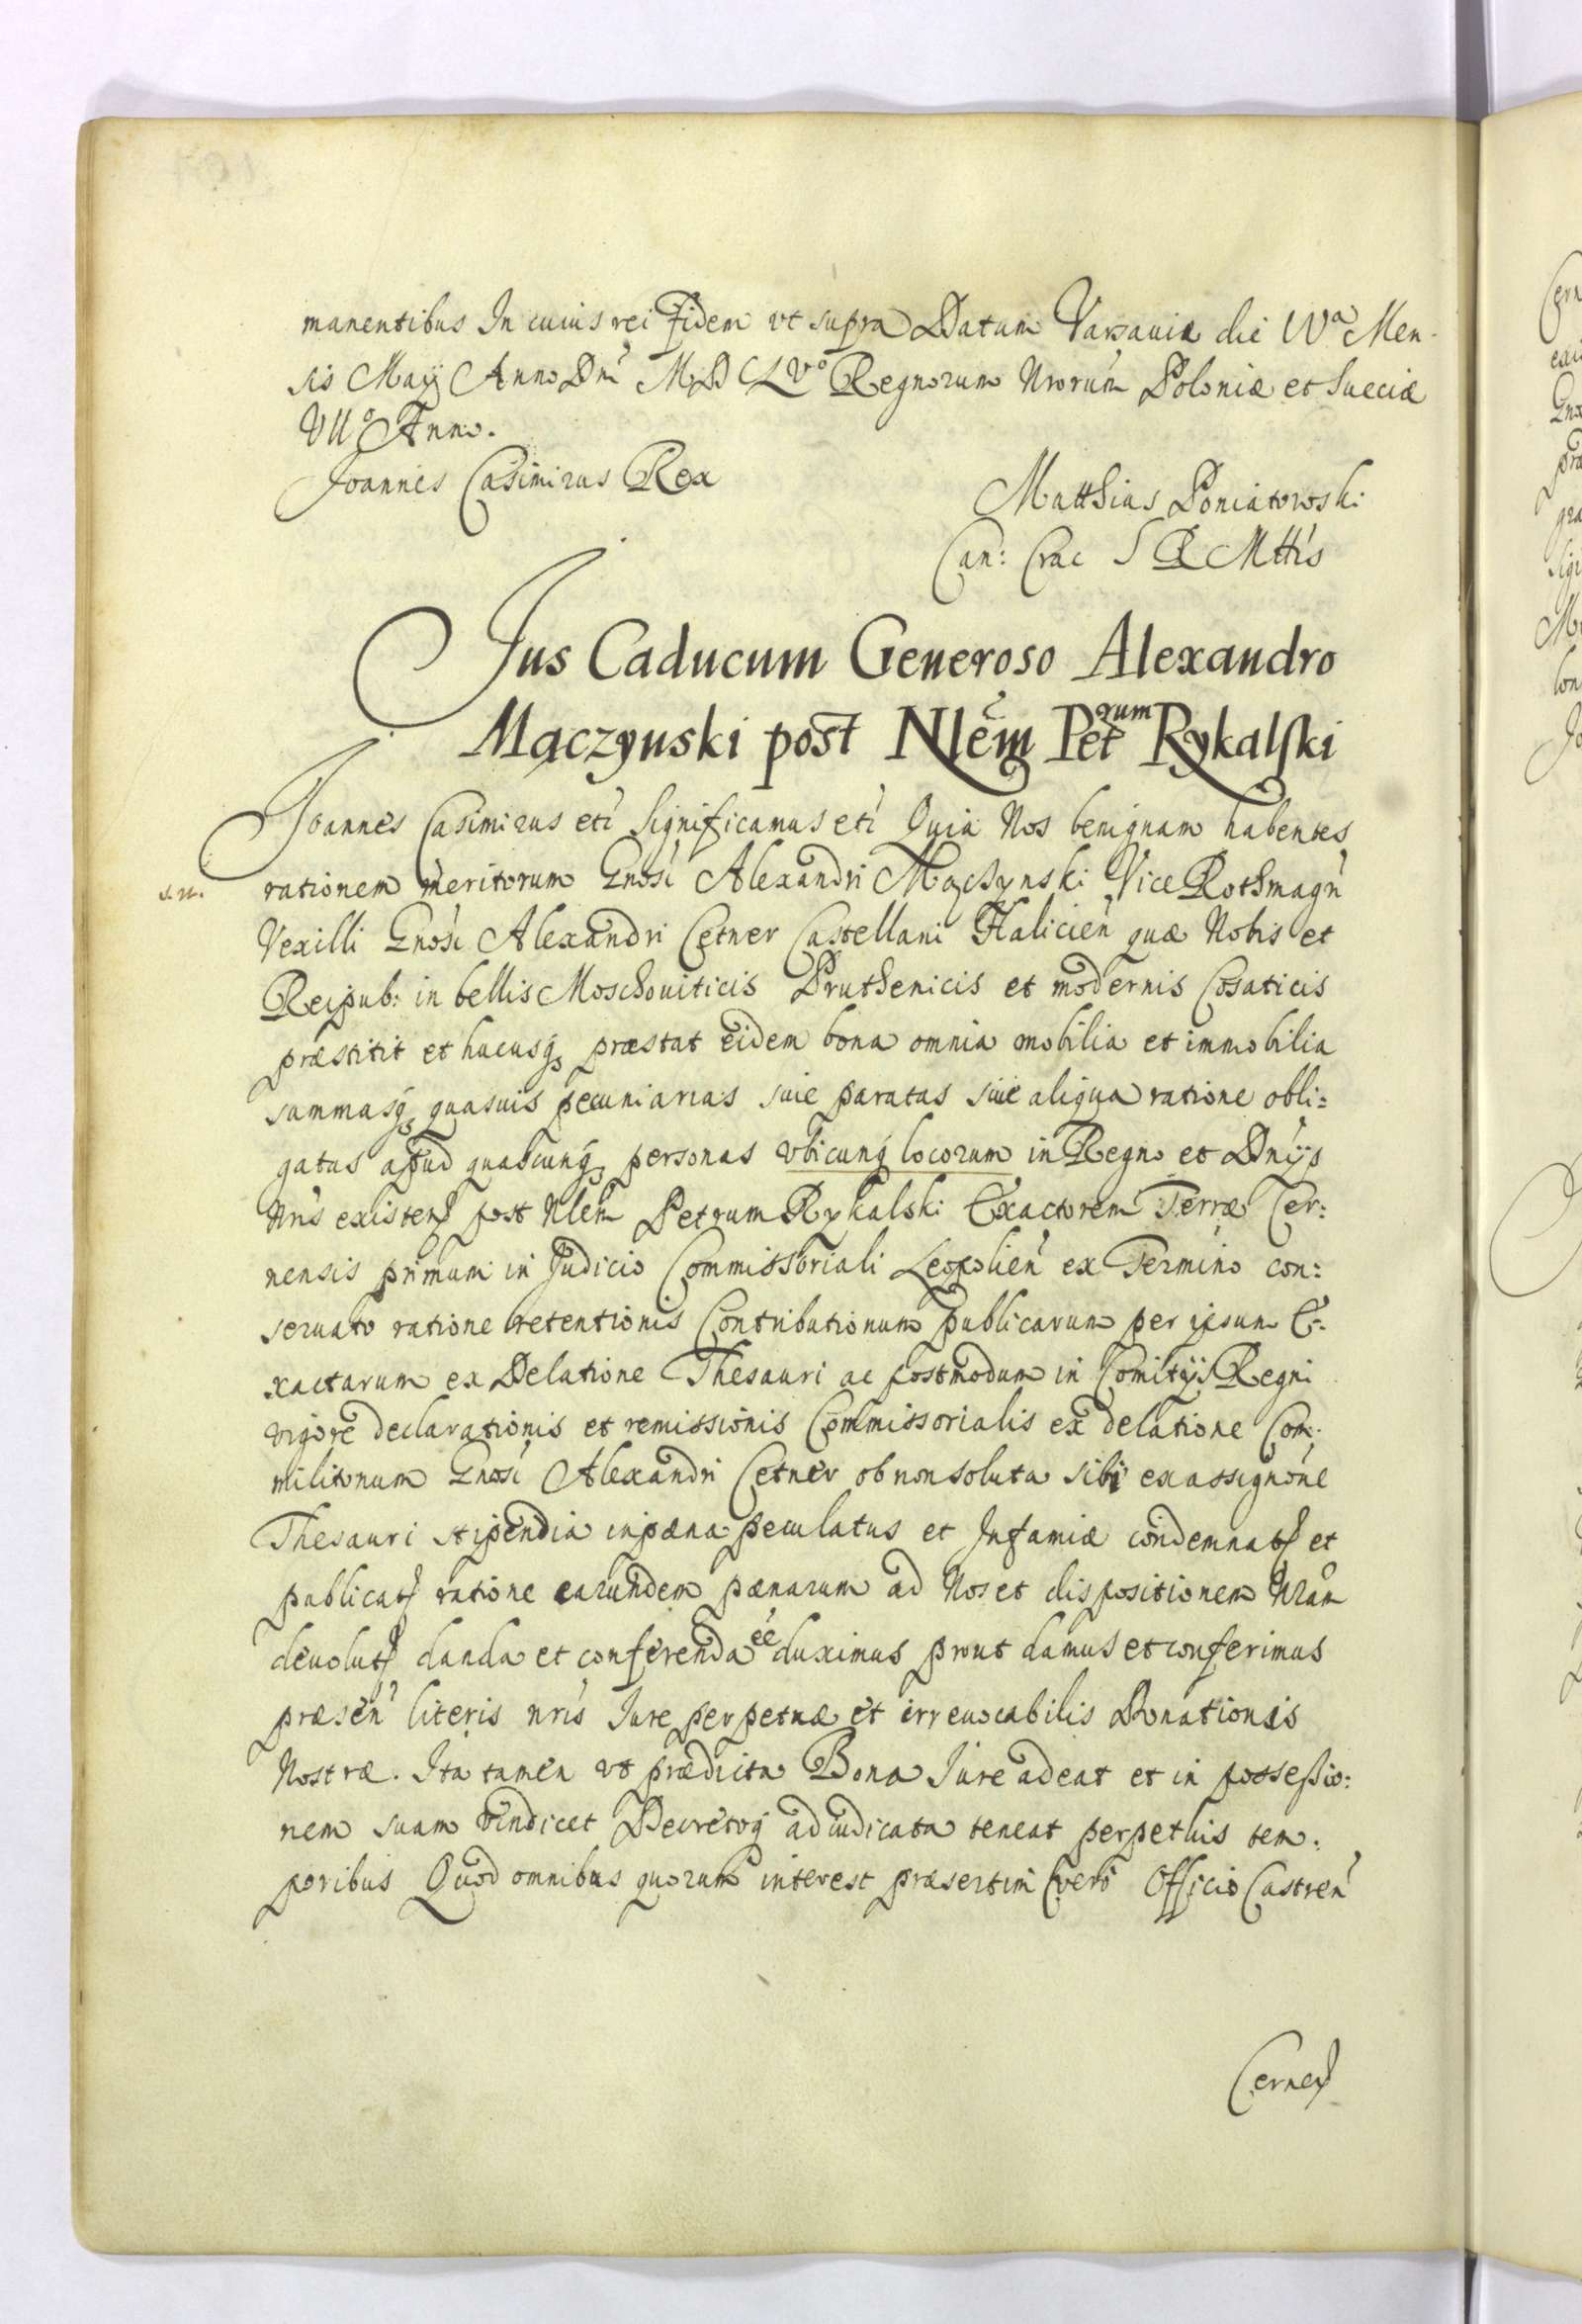 manentibus In cuius rei Fidem vt supra Datum Varsauiæ die IVª Men-
sis Maij Anno Dni M.D.C.L.Vº Regnorum Nrorum Poloniæ et Sueciæ
VIIº Anno.
Joannes Casimirus Rex
Matthias Poniatowski
Can: Crac S R Mttis
Jus Caducum Generoso Alexandro
Mączynski post Nlem Petrum Rykalski
Joannes Casimirus eti Significamus eti Quia Nos benignam habentes
s.n. rationem meritorum Gnosi Alexandri Mączynski Vice Rothmagri
Vexilli Gnosi Alexandri Cetner Castellani Halicien quæ Nobis et
Reipub: in bellis Moschouiticis Pruthenicis et modernis Cosaticis
præstitit et hucusq præstat eidem bona omnia mobilia et immobilia
summasq quasuis pecuniarias siue paratas siue aliqua ratione obli=
gatas apud quascunq personas vbicunq locorum in Regno et Dnijs
Nris existen post Nlem Petrum Rykalski Exactorem Terræ Cer:
nensis primum in Judicio Commissoriali Leopolien ex Termino con:
seruato ratione retentionis Contributionum publicarum per ipsum E-
xactarum ex Delatione Thesauri ac postmodum in Comitijs Regni
vigore declarationis et remissionis Commissorialis ex delatione Com:
militonum Gnosi Alexandri Cetner ob non soluta sibi ex assignone
Thesauri stipendia in pæna peculatus et Infamiæ condemnat et
publicat ratione earundem pænarum ad Nos et dispositionem Nram
deuolut danda et conferenda ee duximus prout damus et conferimus
præsen literis nris Jure perpetuæ et irreuocabilis Donationis
Nostræ. Ita tamen vt prædicta Bona Jure adeat et in possessio:
nem suam vindicet Decretoq adiudicata teneat perpetuis tem:
poribus Quod omnibus quorum interest præsertim vero Officio Castren
Cernen